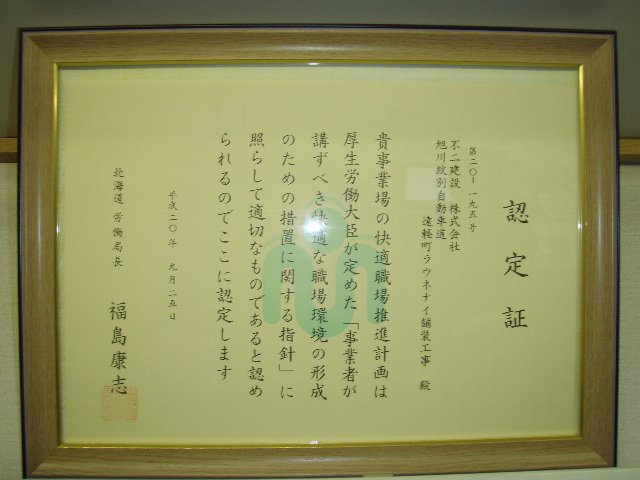 認定証
第二〇－一九五号
不二建設　株式会社
旭川紋別自動車道
遠軽町ラウネナイ舗装工事　殿
貴事業場の快適職場推進計画は
厚生労働大臣が定めた「事業者が
講ずべき快適な職場環境の形成
のための措置に関する指針」に
照らして適切なものであると認め
られるのでここに認定します
平成二〇年　九月二五日
北海道　労働局長　福島康志